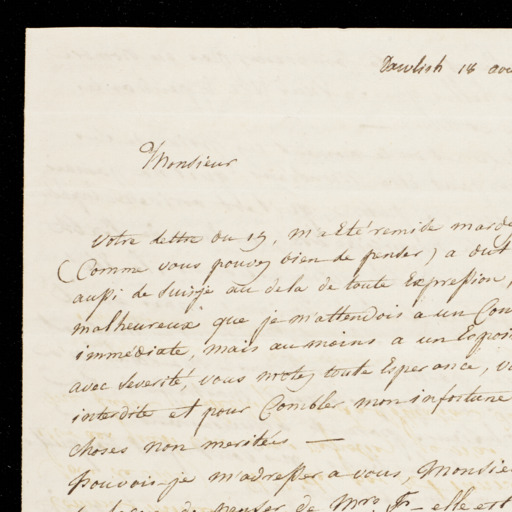 Dawlish 18 aou
Monsieur
Votre lettre du 15, m'a Eté remise mard
(Comme vous pouvez bien de penser) a out
aussi de suisje au dela de toute Expression,
malheureux que je m'attendois a un Con
immédiate, mais au moins a un Espoir
avec severité, vous motez toute Esperance, v
interdite et pour Combler mon infortune
choses non meritées —
pouvois-je m'adresser a vous, Monsieu
de penser de Mrs. Fr— elle est